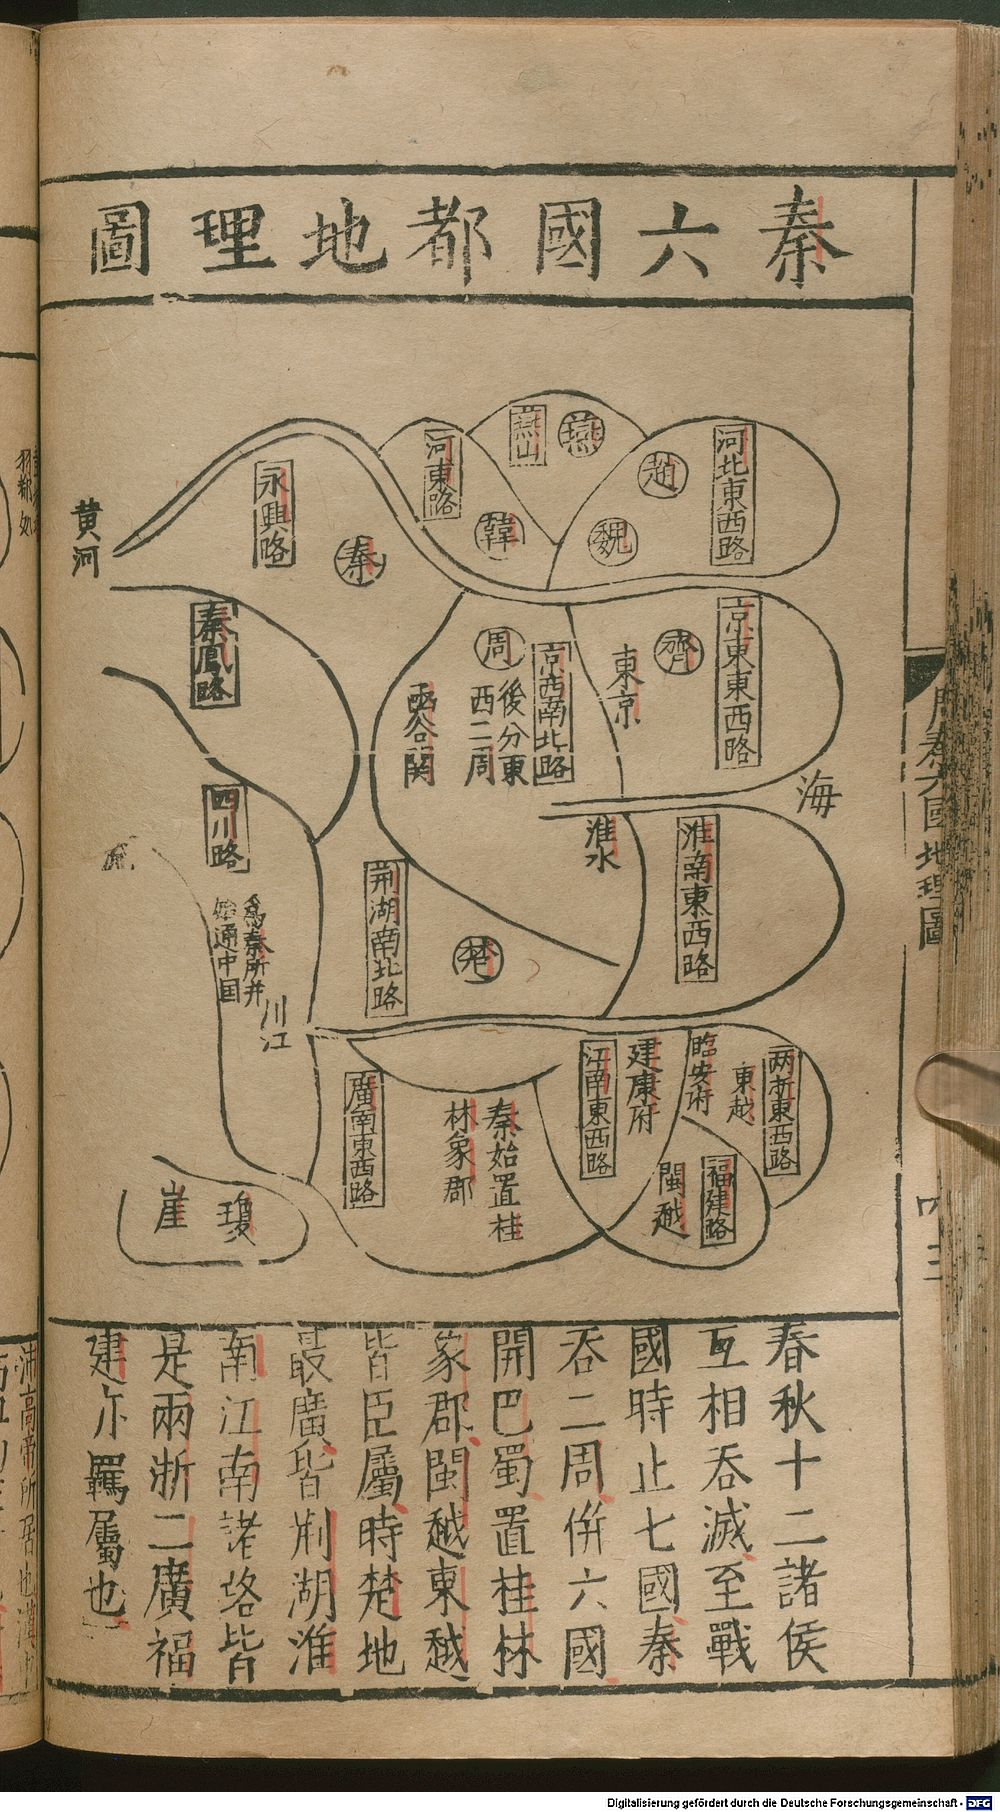 秦六國都地理圖
燕山
燕
河東路
韓
趙
魏
河北東西路
永興路
秦
黃河
秦鳳路
周
後分東
西二周
京西南北路
函谷關
東京
齊
京東東西路
海
四川路
淮水
淮南東西路
荆湖南北路
楚
爲秦所并
始通中国
川江
廣南東西路
秦始置桂
林象郡
江南東西路
建康府
臨安府
東越
两浙東西路
閩越
福建路
瓊
崖
春秋十二諸侯
互相吞滅至戰
國時止七國秦
吞二周併六國
開巴蜀置桂林
象郡閩越東越
皆臣屬時楚地
最廣皆荆湖淮
南江南諸路皆
是兩浙二廣福
建亦羈屬也
周秦六國地理圖
Digitalisierung gefördert durch die Deutsche Forschungsgemeinschaft - DFG